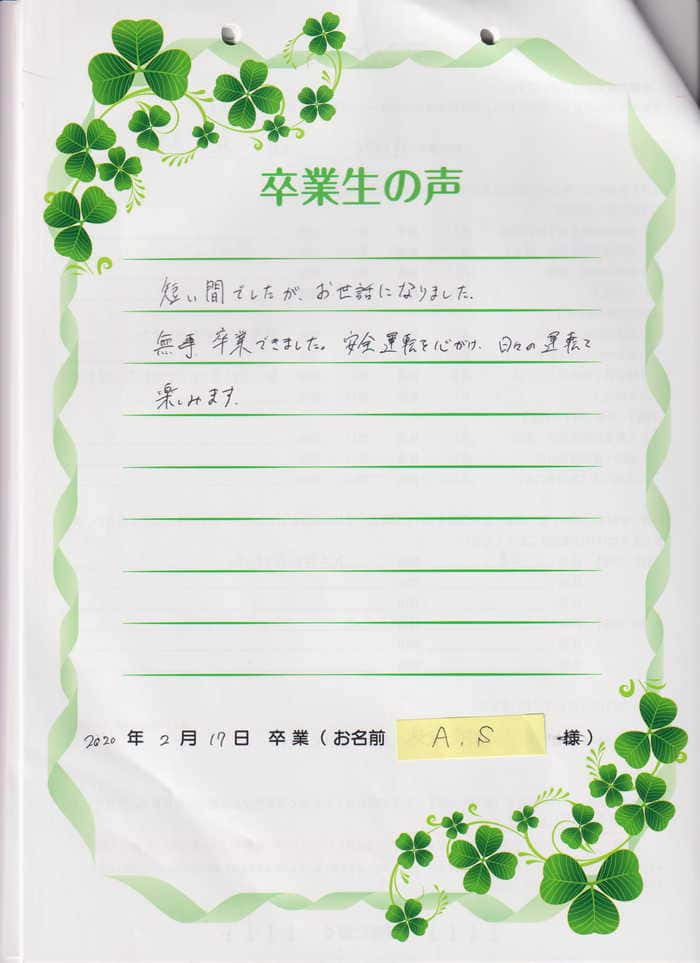 卒業生の声
短い間でしたが、お世話になりました。
無事 卒業できました。安全運転を心がけ、日々の運転を
楽しみます。
2020 年 2 月 17 日 卒業(お名前 A.S 様)